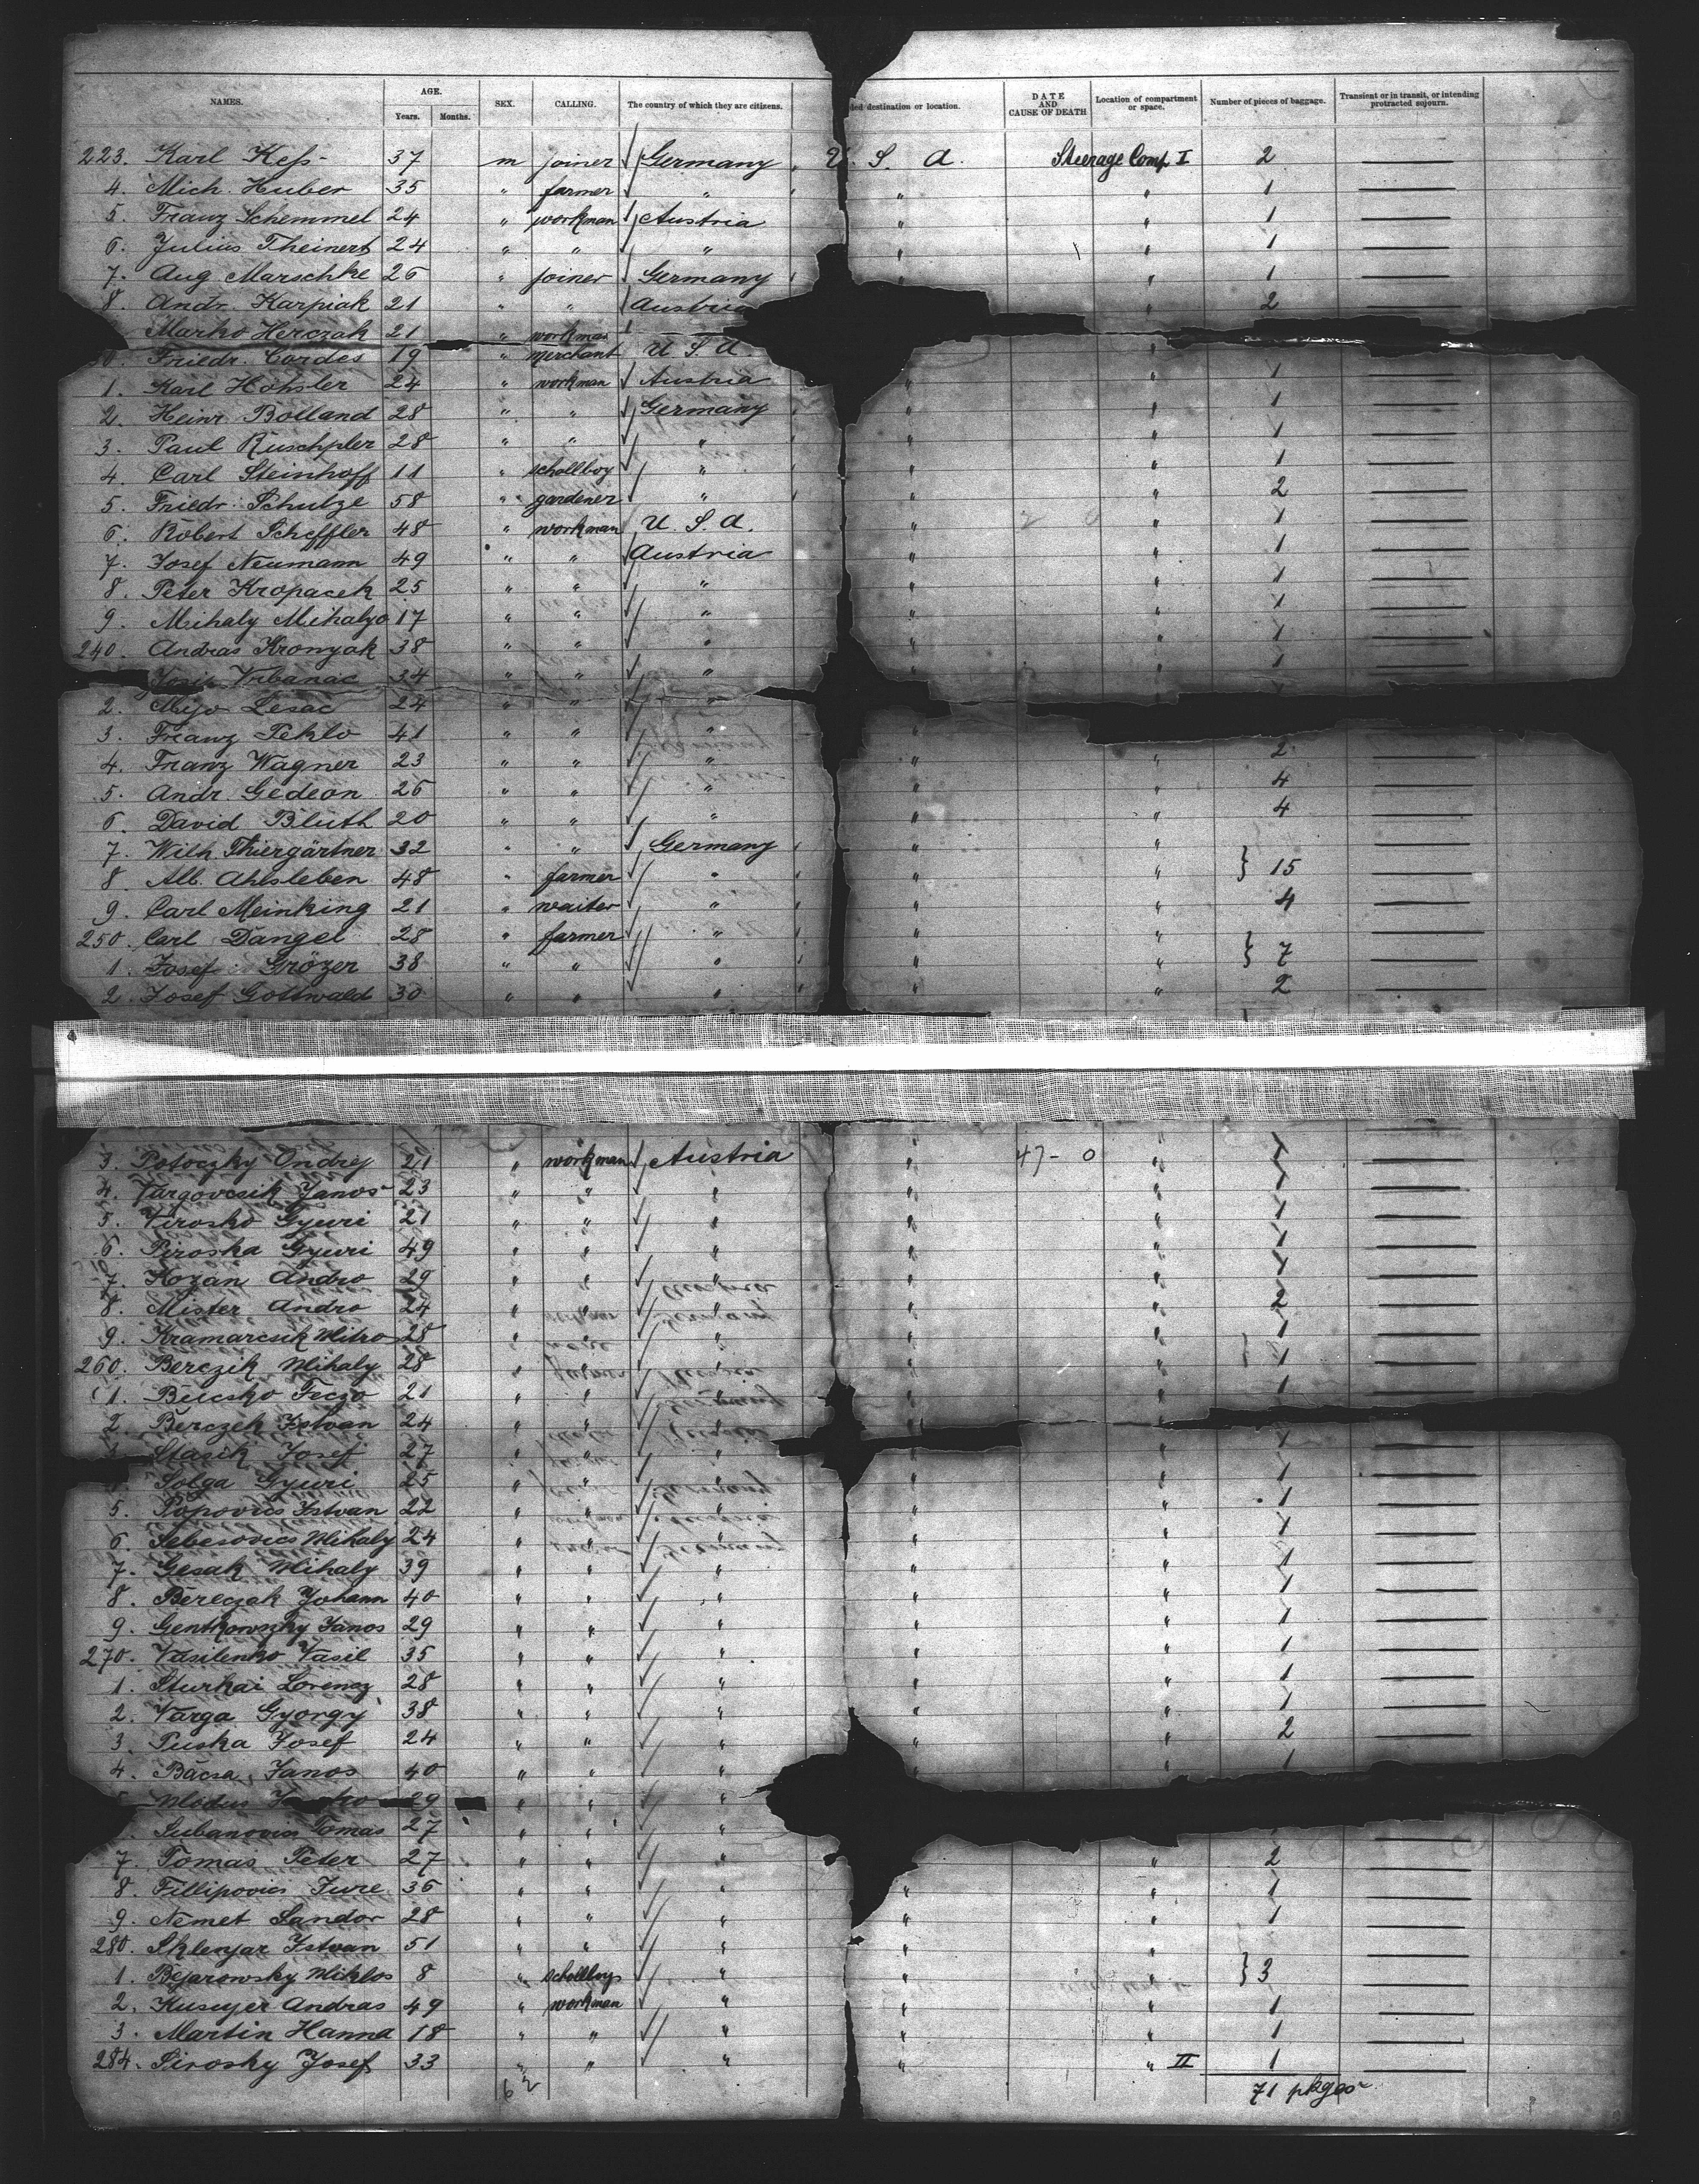 NAMES. AGE. Years. Months. SEX. CALLING. The country of which they are citizens. ded destination or location. DATE AND CAUSE OF DEATH Location of compartment or space. Number of pieces of baggage. Transient or in transit, or intending protracted sojourn.
223. Karl Kess 37 m joiner Germany U. S. A. Steerage Comp I 2
4. Mich. Huber 35 " farmer " " " 1
5. Franz Schemmel 24 " workman Austria " " 1
6. Julius Theinert 24 " " " " " 1
7. Aug. Marschke 26 " joiner Germany " " 1
8. Andr. Karpiak 21 " " Austria " 2
Marko Herczak 21 " workman
30. Friedr. Cordes 19 " merchant U. S. A. "
1. Karl Hohsler 24 " workman Austria " " 1
2. Heinr. Bolland 28 " " Germany " " 1
3. Paul Ruschpler 28 " " " " " 1
4. Carl Steinhoff 11 " schollboy " " " 1
5. Friedr. Schulze 58 " gardener " " " 2
6. Robert Scheffler 48 " workman U. S. A. " " 1
7. Josef Neumann 49 " " Austria " " 1
8. Peter Kropacek 25 " " " " " 1
9. Mihaly Mihalyo 17 " " " " " 1
240. Andras Kronyak 38 " " " " " 1
Josip Vrbanac 34 " " " " " 1
2. Mijo Lesac 24 " " "
3. Franz Peklo 41 " " " "
4. Franz Wagner 23 " " " " " 2
5. Andr. Gedeon 26 " " " " " 4
6. David Bluth 20 " " " " " 4
7. Wilh. Thiergärtner 32 " " Germany " "
8. Alb. Ahlsleben 48 " farmer " " " } 15
9. Carl Meinking 21 " waiter " " " 4
250. Carl Dangel 28 " farmer " " "
1. Josef Grözer 38 " " " " " } 7
2. Josef Gottwald 30 " " " " 2
3. Potoczky Ondrej 21 " workman Austria " 47-0 " 1
4. Vargovcsik Janos 23 " " " " " 1
5. Virosko Gyuri 21 " " " " " 1
6. Piroska Gyuri 49 " " " " " 1
7. Kozan Andro 29 " " " " " 1
8. Mister Andro 24 " " " " " 2
9. Kramarcsik Mitro 28 " " " " " 1
260. Berczik Mihaly 28 " " " " " 1
1. Bucsko Feczo 21 " " " " " 1
2. Berczek Istvan 24 " " " "
Stacik Josef 27 " " " " " 1
Solga Gyuri 25 " " " " " 1
5. Popovics Istvan 22 " " " " " 1
6. Sebesovics Mihaly 24 " " " " " 1
7. Gesak Mihaly 39 " " " " " 1
8. Bereczak Johann 40 " " " " " 1
9. Gentkowszky Janos 29 " " " " " 1
270. Vasilenko Vasil 35 " " " " " 1
1. Sturkai Lorencz 28 " " " " " 1
2. Varga György 38 " " " " " 1
3. Puska Josef 24 " " " " " 2
4. Bacsa Janos 40 " " " " 1
5. Mlodus 29 " " "
Subanovics Tomas 27 " " "
7. Tomas Peter 27 " " " " 2
8. Fillipovics Jure 36 " " " " " 1
9. Nemet Sandor 28 " " " " " 1
280. Sklenjar Istvan 51 " " " " "
1. Bejarowsky Miklos 8 " schollboy " " " } 3
2. Kusnyer Andras 49 " workman " " " 1
3. Martin Hanna 18 " " " " " 1
284. Pirosky Josef 33 " " " " " II 1
62 71 pkges